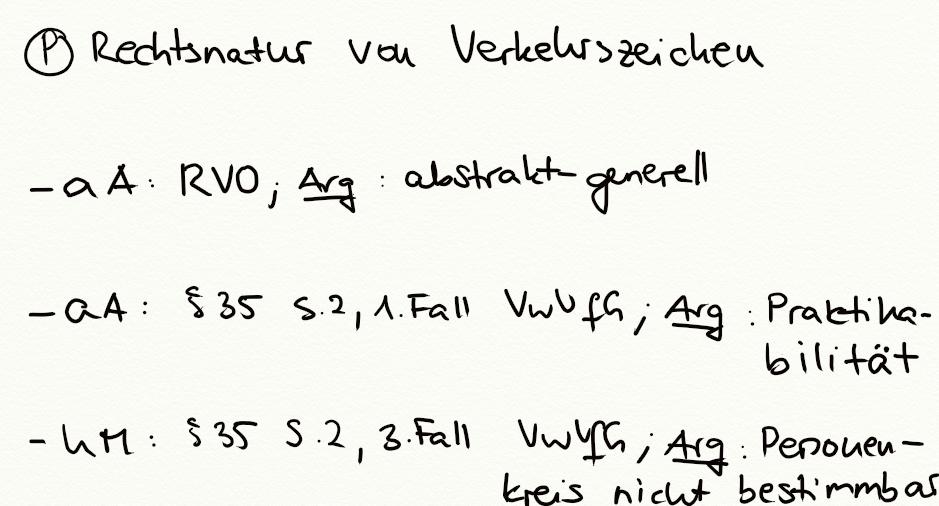 Ⓟ Rechtsnatur von Verkehrszeichen
- aA: RVO; Arg: abstrakt-generell
- aA: § 35 S.2, 1.Fall VwVfG; Arg: Praktika-
bilität
- hM: § 35 S.2, 3.Fall VwVfG; Arg: Personen-
kreis nicht bestimmbar